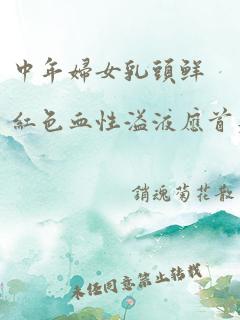 中年婦女乳頭鮮
紅色血性溢液應首
銷魂菊花散
未經同意禁止轉載